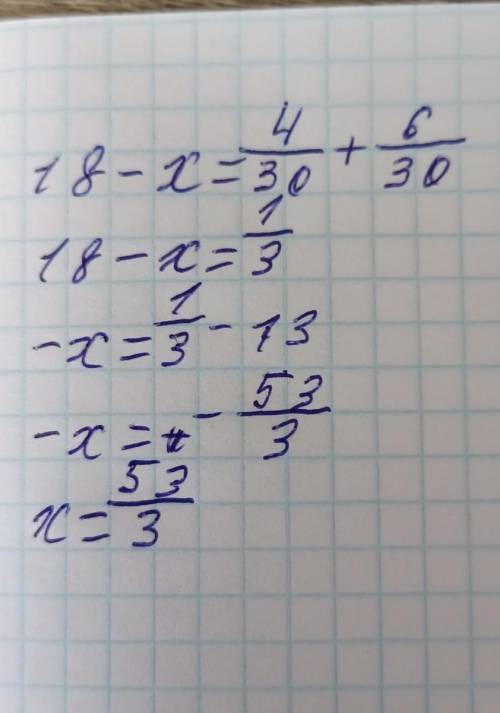 18 - x = 4/30 + 6/30
18 - x = 1/3
-x = 1/3 - 13
-x = - 53/3
x = 53/3